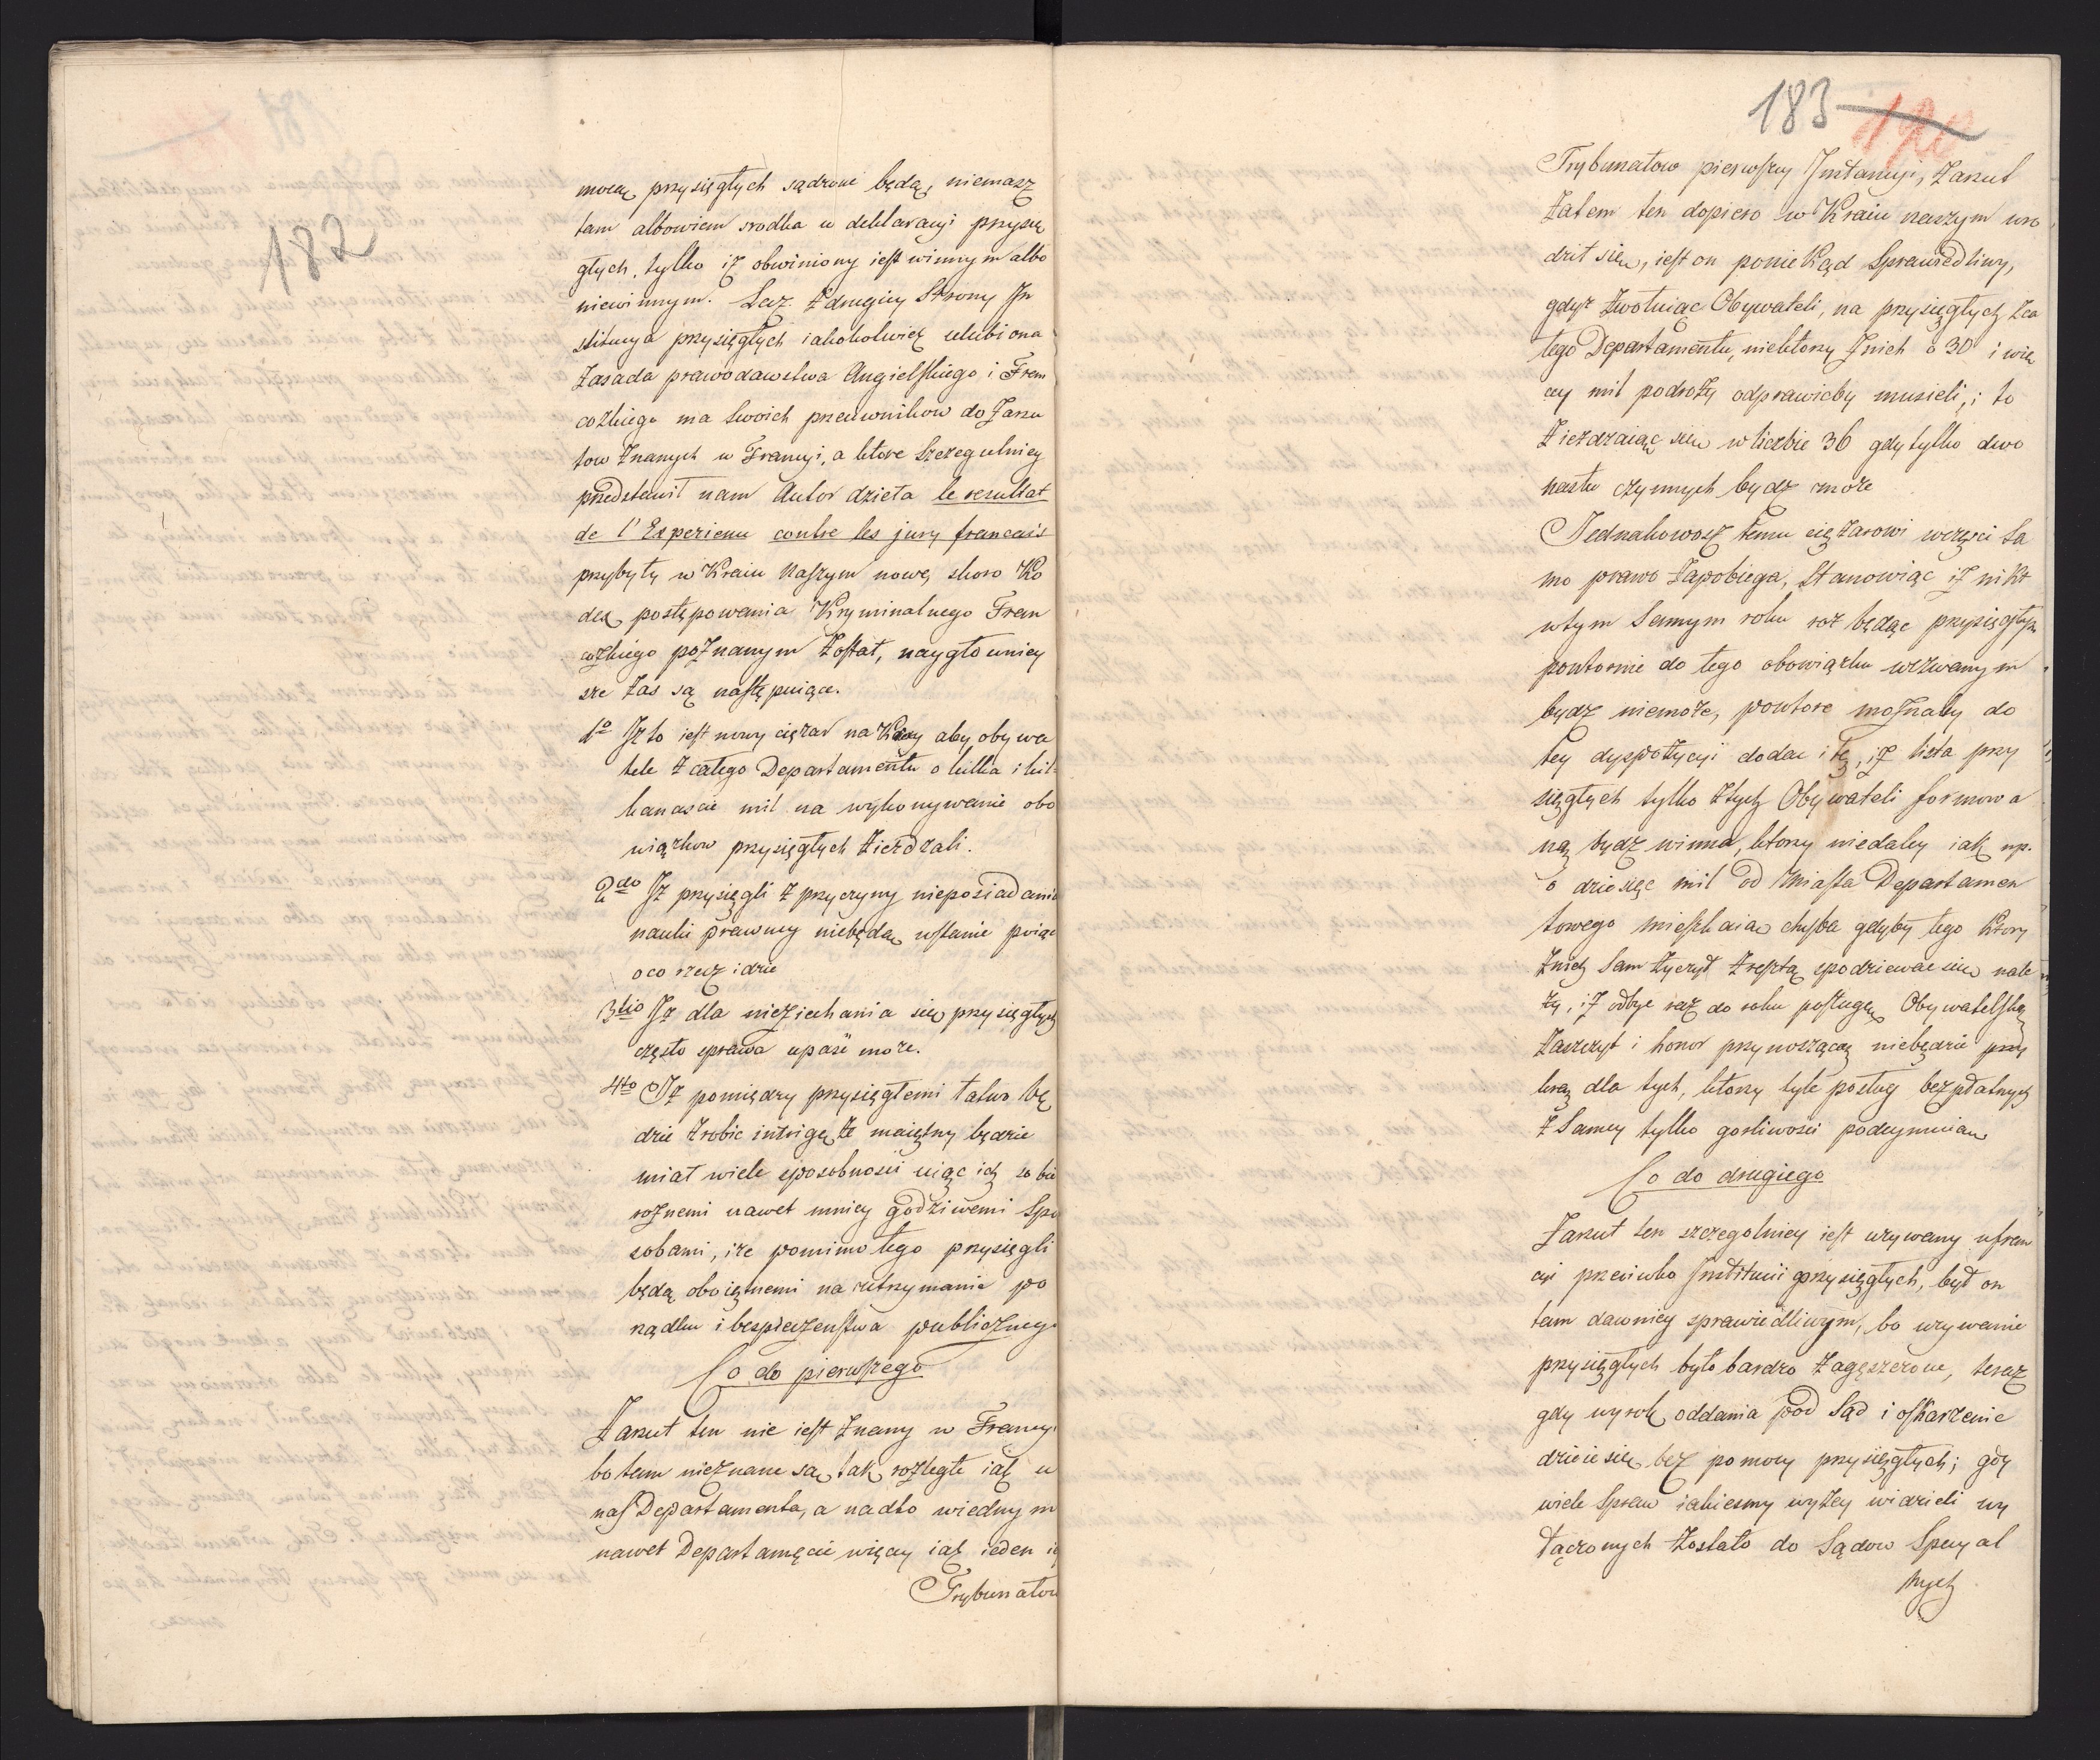 182
mocą przysięgłych sądzone będą, niemasz
tam albowiem srodka w deklaracyi przysię
głych, tylko iż obwiniony iest winnym albo
niewinnym. Lecz z drugiey Strony In
stitucya przysięgłych iakokolwiek ulubiona
zasada prawodawstwa Angielskiego i Fran
cozkiego ma swoich przeciwnikow do Zarzu
tow znanych w Francyi, a ktore szczegulniey
przedstawił nam Autor dzieła le resultat
de l'Experience contre les jury francais
przybyły w Kraiu naszym nowe, skoro Ko
dex postępowania Kryminalnego Fran
cozkiego poznanym został, naygłowniey
sze zas są następuiące.
1o Iż to iest nowy ciężar na Kray aby obywa
tele z całego Departamentu o kilka i kil
kanascie mil na wykonywanie obo
wiązkow przysięgłych ziezdzali.
2do Iż przysięgli z przyczyny nieposiadania
nauki prawney niebędą wstanie poiąć
oco rzecz idzie
3tio Iż dla nieziechania się przysięgłych
często sprawa upaść może.
4to Iż pomiędzy przysięgłemi łatwo bę
dzie zrobic intrigę, że maiętny będzie
miał wiele sposobności uiąc ich sobie
roznemi nawet mniey godziwemi spo
sobami, i że pomimo tego przysięgli
będą oboiętnemi na utrzymanie po
rządku i bespieczeństwa publicznego
Co do pierwszego
Zarzut ten nie iest znany w Francyi
bo tam nieznane są tak rozległe iak u
nas Departamenta, a nadto wiednym
nawet Departamęcie więcey iak ieden
Trybunałow
183 190
Trybunałow pierwszey Instancyi, Zarzut
zatem ten dopiero w Kraiu naszym uro
dził się, iest on poniekąd sprawiedliwy,
gdyż zwołuiąc Obywateli, na przysięgłych zca
łego Departamentu, niektorzy znich o 30 i wię
cey mil podroży odprawicby musieli, i to
ziezdzaiąc się w liczbie 36 gdy tylko dwo
nastu czynnych bydz może
Jednakowosz temu ciężarowi wczęsci sa
mo prawo zapobiega, stanowiąc iż nikt
wtym samym roku raz będąc przysięgłym
powtornie do tego obowiązku wezwanym
bydz niemoże, powtore možnaby do
tey dyspozycyi dodac i tę, iż lista przy
sięgłych tylko ztych Obywateli formowa
ną bydz winna, ktorzy niedaley iak np.
o dziesięc mil od Miasta Departamen
towego mieszkaią chyba gdyby tego ktory
znich sam życzył zresztą spodziewac się nale
ży, iż odbyc raz do roku posługę Obywatelską
zaszczyt i honor przynoszącą niebędzie przy
krą dla tych, ktorzy tyle posług bezpłatnych
z samey tylko gorliwości podeymuią
Co do drugiego
Zarzut ten szczegolniey iest używany wfran
cyi przeciwko Institucii przysięgłych, był on
tam dawniey sprawiedliwym, bo używanie
przysięgłych było bardzo zagęszczone, teraz
gdy wyrok oddania pod Sąd i oskarżenie
dzieie się bez pomocy przysięgłych; gdy
wiele spraw iakiesmy wyżey widzieli wy
łączonych zostało do Sądow Specyal
nych